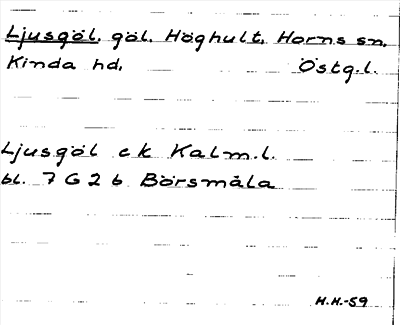 Ljusgöl, göl, Höghult, Horns sn,
Kinda hd, Östg.l.
Ljusgöl ek Kalm.l.
bl. 7 G 2 b Börsmåla
H.H.-59